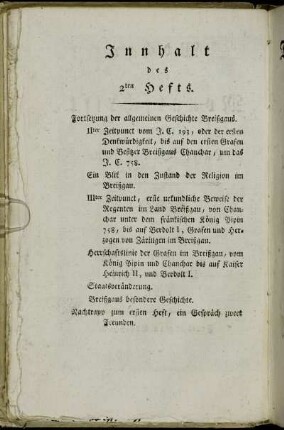 Innhalt
des
2ten Hefts.
Fortsetzung der allgemeinen Geschichte Breißgaus.
IIter Zeitpunct vom J. C. 193, oder der ersten
Denkwürdigkeit, bis auf den ersten Grafen
und Besitzer Breißgaus Chanchar, um das
J. C. 758.
Ein Blik in den Zustand der Religion im
Breißgau.
IIIter Zeitpunct, erste urkundliche Beweise der
Regenten im Land Breißgau, von Chan-
char unter dem fränkischen König Pipin
758, bis auf Berdolt I, Grafen und Her-
zogen von Zäringen im Breisgau.
Herrschaftslinie der Grafen im Breißgau, vom
König Pipin und Chanchar bis auf Kaiser
Heinrich II, und Berdolt I.
Staatsveränderung.
Breißgaus besondere Geschichte.
Nachtrag zum ersten Heft, ein Gespräch zween
Freunden.